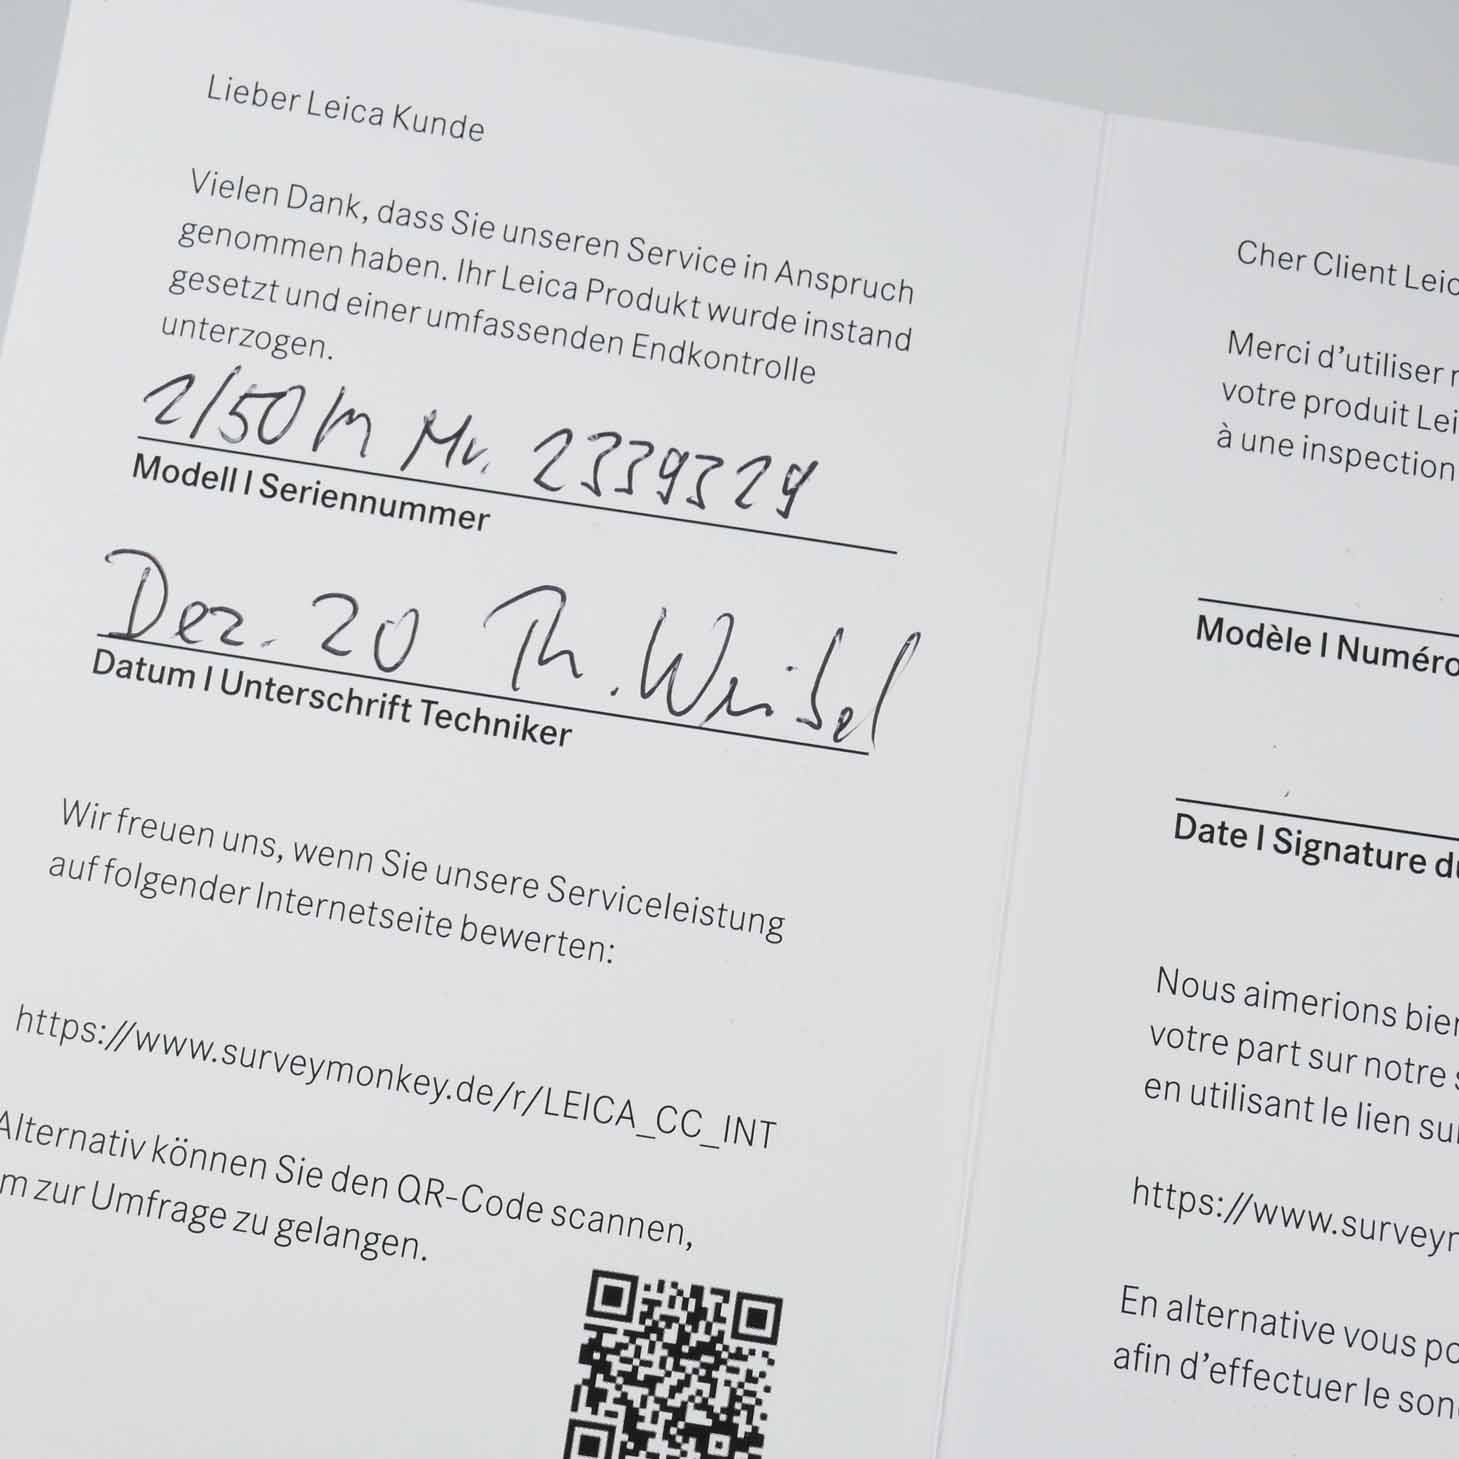 Lieber Leica Kunde
Vielen Dank, dass Sie unseren Service in Anspruch
genommen haben. Ihr Leica Produkt wurde instand
gesetzt und einer umfassenden Endkontrolle
unterzogen.
2/50 M Nr. 2339329
Modell | Seriennummer
Dez. 20 Th.
Datum | Unterschrift Techniker
Wir freuen uns, wenn Sie unsere Serviceleistung
auf folgender Internetseite bewerten:
https://www.surveymonkey.de/r/LEICA_CC_INT
Alternativ können Sie den QR-Code scannen,
m zur Umfrage zu gelangen.
Cher Client Leic
Merci d'utiliser
votre produit Lei
à une inspection
Modèle | Numéro
Date | Signature du
Nous aimerions bien
votre part sur notre s
en utilisant le lien sui
https://www.surveym
En alternative vous po
afin d'effectuer le son